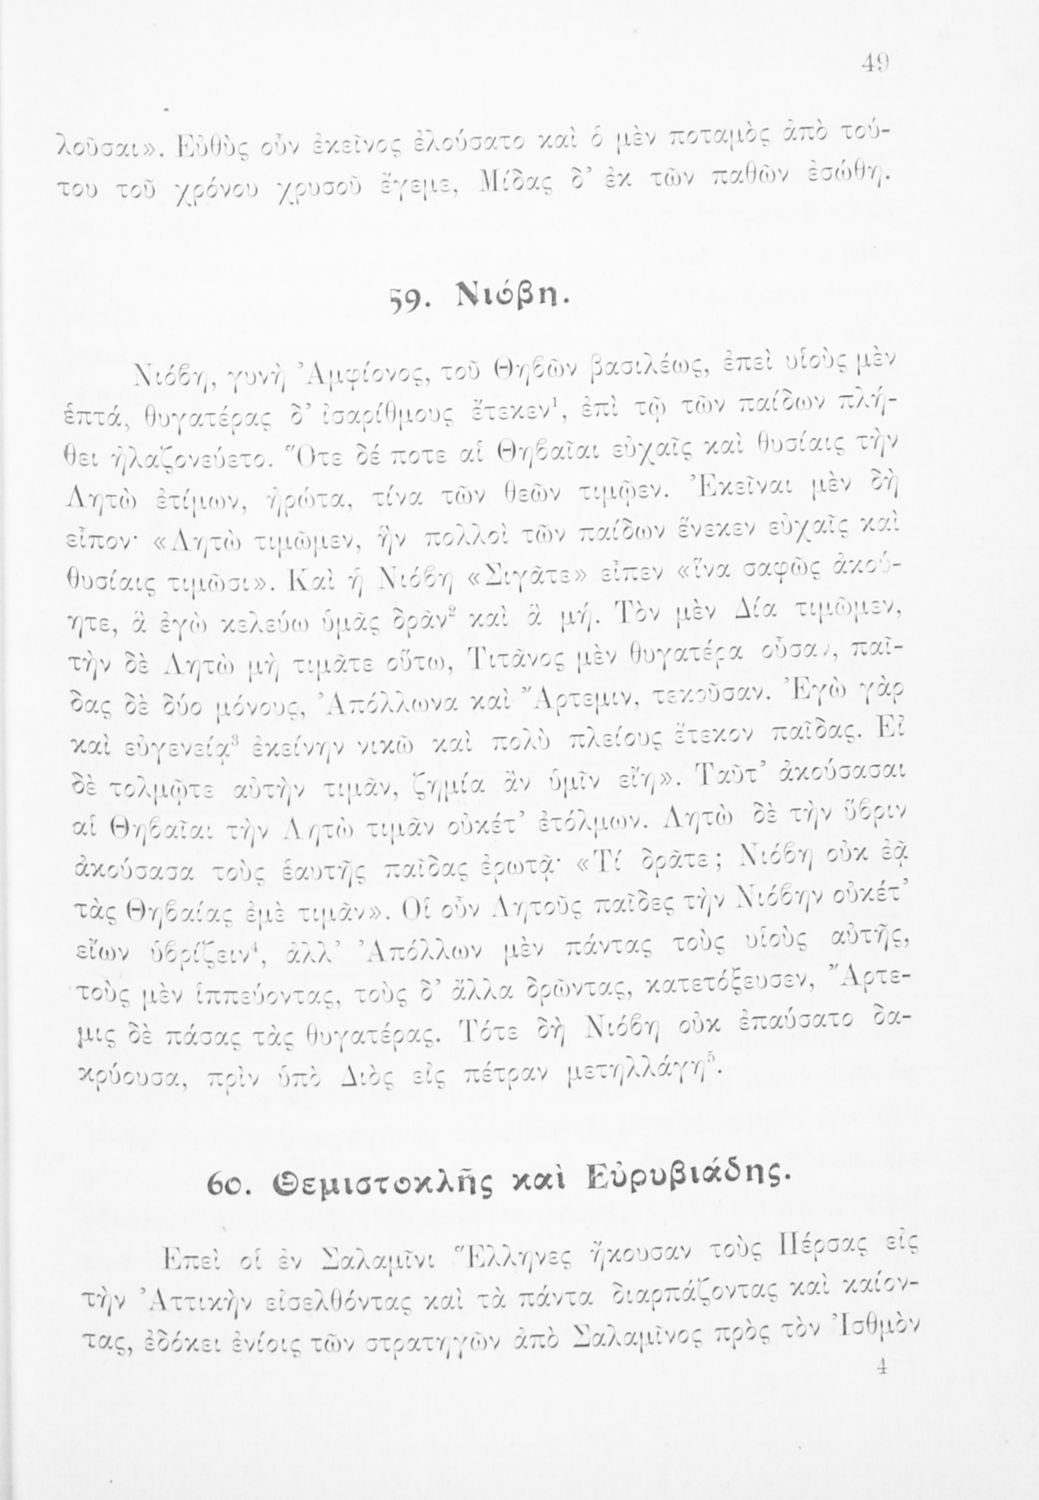 49
λοῦσαι». Εὐθὺς οὖν ἐκεῖνος ἐλούσατο καὶ ὁ μὲν ποταμὸς ἀπὸ τού-
του τοῦ χρόνου χρυσοῦ ἔγεμε, Μίδας δ' ἐκ τῶν παθῶν ἐσώθη.
59. Νιόβη.
Νιόβη, γυνὴ Ἀμφίονος, τοῦ Θηβῶν βασιλέως, ἐπεὶ υἱοὺς μὲν
ἑπτά, θυγατέρας δ' ἰσαρίθμους ἔτεκεν¹, ἐπὶ τῷ τῶν παίδων πλή-
θει ἠλαζονεύετο. Ὅτε δέ ποτε αἱ Θηβαῖαι εὐχαῖς καὶ θυσίαις τὴν
Λητὼ ἐτίμων, ἠρώτα, τίνα τῶν θεῶν τιμῷεν. Ἐκεῖναι μὲν δὴ
εἶπον· «Λητὼ τιμῶμεν, ἣν πολλοὶ τῶν παίδων ἕνεκεν εὐχαῖς καὶ
θυσίαις τιμῶσι». Καὶ ἡ Νιόβη «Σιγᾶτε» εἶπεν «ἵνα σαφῶς ἀκού-
ητε, ἃ ἐγὼ κελεύω ὑμᾶς δρᾶν² καὶ ἃ μή. Τὸν μὲν Δία τιμῶμεν,
τὴν δὲ Λητὼ μὴ τιμᾶτε οὕτω, Τιτᾶνος μὲν θυγατέρα οὖσαν, παῖ-
δας δὲ δύο μόνους, Ἀπόλλωνα καὶ Ἄρτεμιν, τεκοῦσαν. Ἐγὼ γὰρ
καὶ εὐγενείᾳ³ ἐκείνην νικῶ καὶ πολὺ πλείους ἔτεκον παῖδας. Εἰ
δὲ τολμῷτε αὐτὴν τιμᾶν, ζημία ἂν ὑμῖν εἴη». Ταῦτ' ἀκούσασαι
αἱ Θηβαῖαι τὴν Λητὼ τιμᾶν οὐκέτ' ἐτόλμων. Λητὼ δὲ τὴν ὕβριν
ἀκούσασα τοὺς ἑαυτῆς παῖδας ἐρωτᾷ· «Τί δρᾶτε; Νιόβη οὐκ ἐᾷ
τὰς Θηβαίας ἐμὲ τιμᾶν». Οἱ οὖν Λητοῦς παῖδες τὴν Νιόβην οὐκέτ'
εἴων ὑβρίζειν⁴, ἀλλ' Ἀπόλλων μὲν πάντας τοὺς υἱοὺς αὐτῆς,
τοὺς μὲν ἱππεύοντας, τοὺς δ' ἄλλα δρῶντας, κατετόξευσεν, Ἄρτε-
μις δὲ πάσας τὰς θυγατέρας. Τότε δὴ Νιόβη οὐκ ἐπαύσατο δα-
κρύουσα, πρὶν ὑπὸ Διὸς εἰς πέτραν μετηλλάγη⁵.
60. Θεμιστοκλῆς καὶ Εὐρυβιάδης.
Ἐπεὶ οἱ ἐν Σαλαμῖνι Ἕλληνες ἤκουσαν τοὺς Πέρσας εἰς
τὴν Ἀττικὴν εἰσελθόντας καὶ τὰ πάντα διαρπάζοντας καὶ καίον-
τας, ἐδόκει ἐνίοις τῶν στρατηγῶν ἀπὸ Σαλαμῖνος πρὸς τὸν Ἰσθμὸν
4